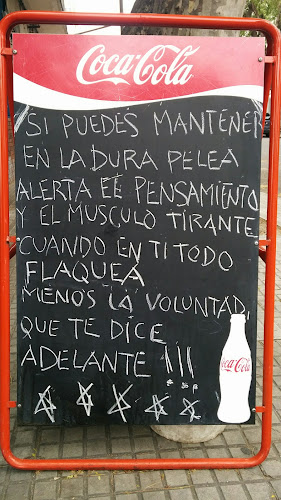 Coca-Cola
SI PUEDES MANTENER
EN LA DURA PELEA
ALERTA EL PENSAMIENTO
Y EL MUSCULO TIRANTE
CUANDO EN TI TODO
FLAQUEA
MENOS LA VOLUNTAD,
QUE TE DICE
ADELANTE !!!
Coca-Cola